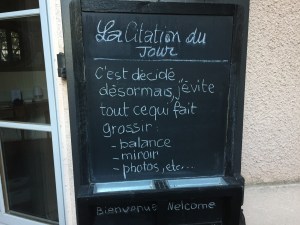 La Citation du
Jour
C'est décidé,
désormais, j'évite
tout ce qui fait
grossir:
- balance
- miroir
- photos, etc...
Bienvenue Welcome